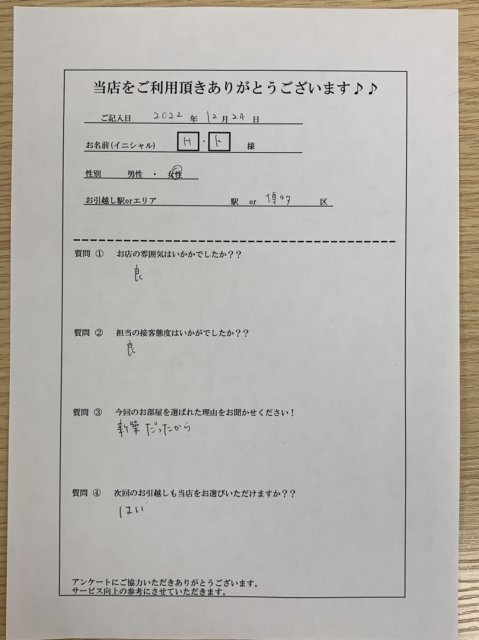 当店をご利用頂きありがとうございます♪♪
ご記入日 2022 年 12 月 24 日
お名前(イニシャル) H ・ 様
性別 男性 ・ 女性
お引越し駅orエリア 駅 or 博多 区
質問 ① お店の雰囲気はいかかでしたか??
良
質問 ② 担当の接客態度はいかがでしたか??
良
質問 ③ 今回のお部屋を選ばれた理由をお聞かせください!
新築だったから
質問 ④ 次回のお引越しも当店をお選びいただけますか??
はい
アンケートにご協力いただきありがとうございます。
サービス向上の参考にさせていただきます。